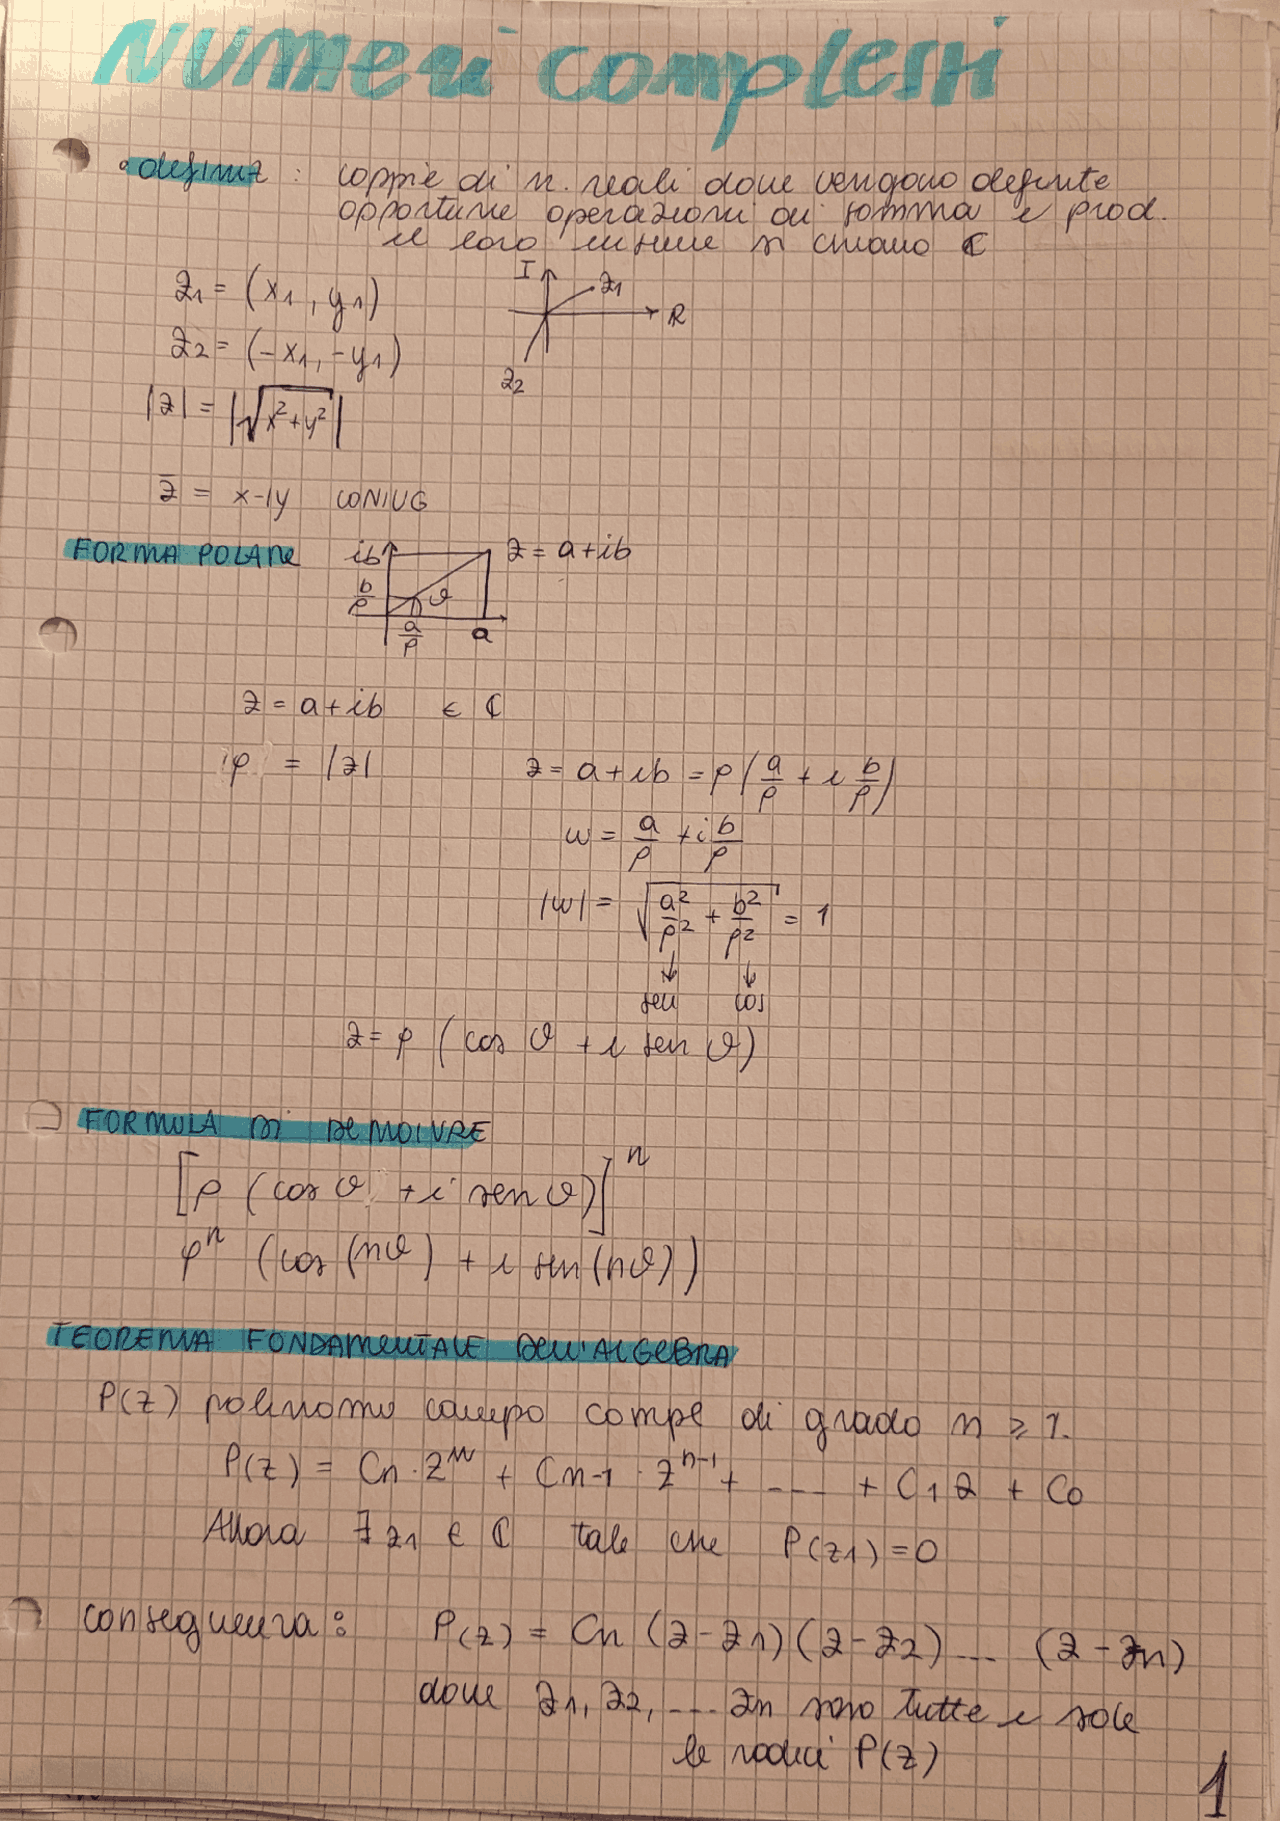 Numeri complessi
definiz : coppie di n. reali dove vengono definite
opportune operazioni di somma e prod.
il loro insieme si chiama ℂ
z1 = (x1 , y1)
I
z1
R
z2 = (-x1, -y1)
z2
|z| = |√x²+y²|
z̄ = x-iy CONIUG
FORMA POLARE
ib
z = a+ib
b/ρ
ϑ
a/ρ
a
z = a+ib ∈ ℂ
ρ = |z|
z = a+ib = ρ(a/ρ + i b/ρ)
w = a/ρ + i b/ρ
|w| = √a²/ρ² + b²/ρ² = 1
↓ ↓
sen cos
z = ρ (cos ϑ + i sen ϑ)
FORMULA DI DE MOIVRE
[ρ (cos ϑ + i sen ϑ)]ⁿ
ρⁿ (cos (nϑ) + i sen (nϑ))
TEOREMA FONDAMENTALE DELL'ALGEBRA
P(z) polinomio campo compl di grado n ≥ 1.
P(z) = Cn · zⁿ + Cn-1 · zⁿ⁻¹ + .... + C1 z + C0
Allora ∃ z1 ∈ ℂ tale che P(z1) = 0
conseguenza : P(z) = Cn (z - z1) (z - z2) ... (z - zn)
dove z1, z2, ... zn sono tutte e sole
le radici P(z)
1